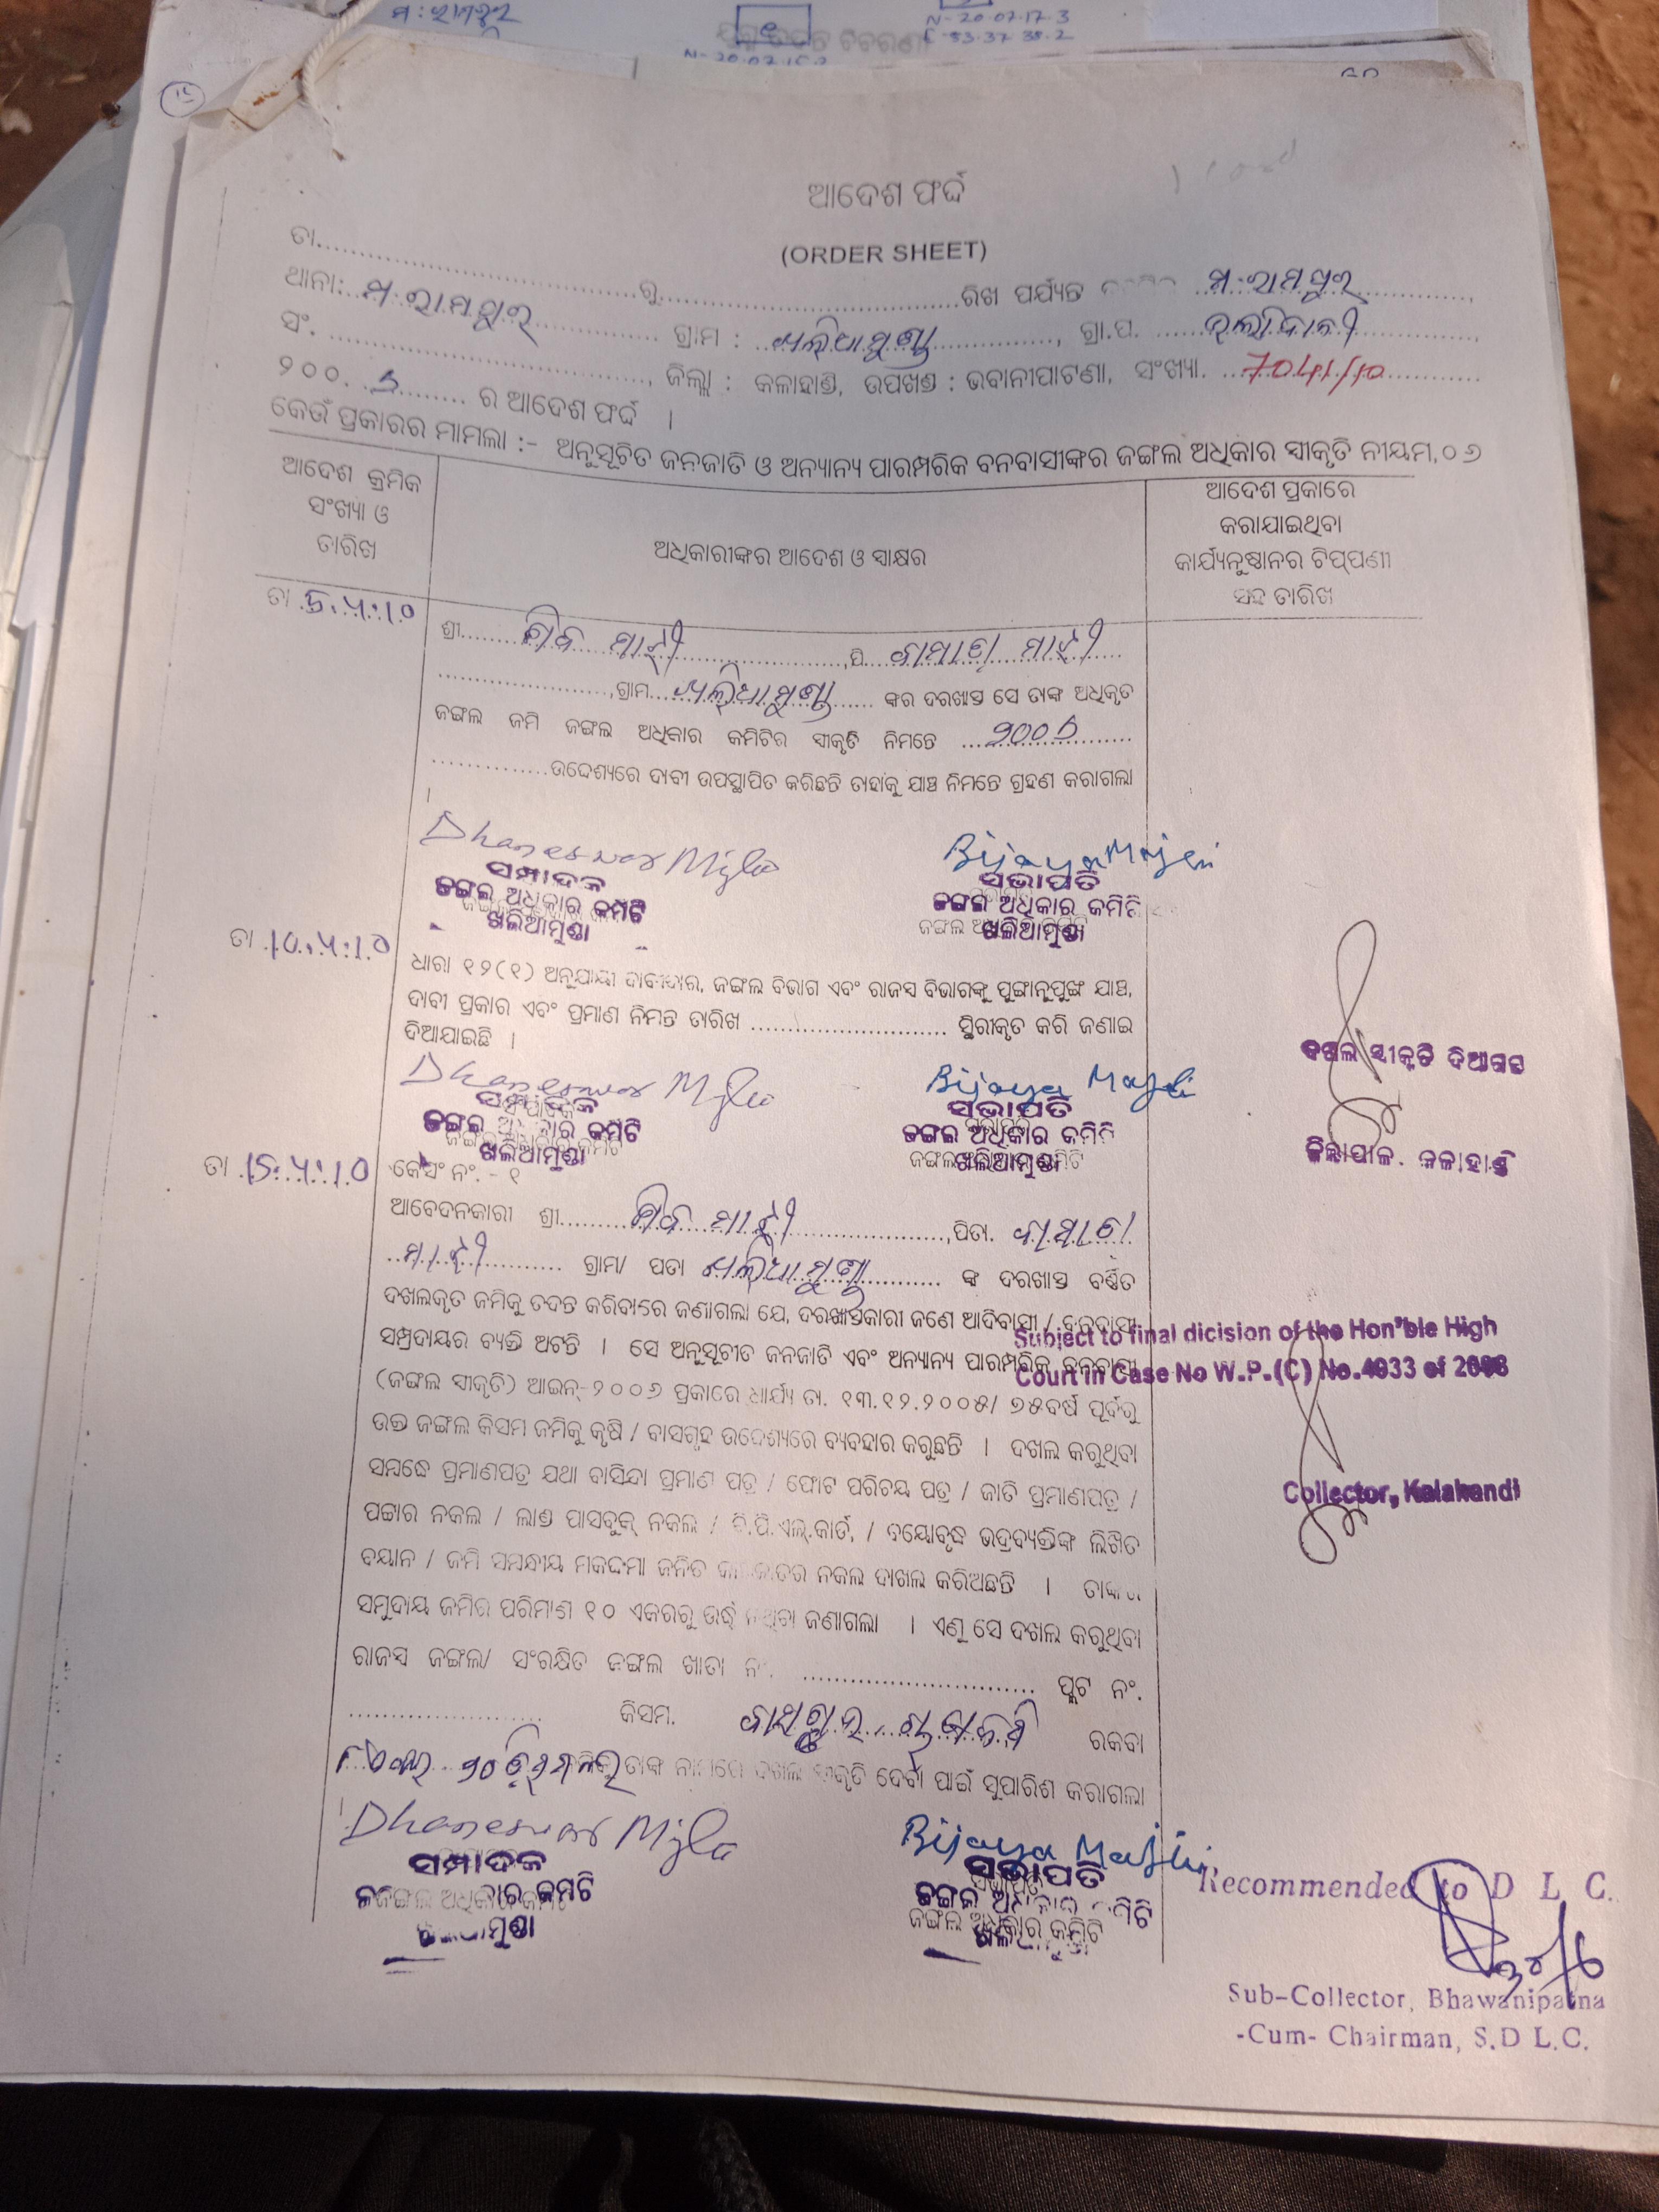 ମ:ରାମପୁର
N-20.07.17.3
E-83.37.38.2
ଆଦେଶ ଫର୍ଦ୍ଦ
(ORDER SHEET)
ତା....................ରୁ....................ରିଖ ପର୍ଯ୍ୟନ୍ତ ମ:ରାମପୁର
ଥାନା: ମ.ରାମପୁର ଗ୍ରାମ : ଖଲିଆମୁଣ୍ଡା, ଗ୍ରା.ପ.
ସଂ. ...................., ଜିଲ୍ଲା : କଳାହାଣ୍ଡି, ଉପଖଣ୍ଡ : ଭବାନୀପାଟଣା, ସଂଖ୍ୟା. 7041/10
୨୦୦. ........ ର ଆଦେଶ ଫର୍ଦ୍ଦ ।
କେଉଁ ପ୍ରକାରର ମାମଲା :- ଅନୁସୂଚିତ ଜନଜାତି ଓ ଅନ୍ୟାନ୍ୟ ପାରମ୍ପରିକ ବନବାସୀଙ୍କର ଜଙ୍ଗଲ ଅଧିକାର ସ୍ୱୀକୃତି ନୀୟମ,୦୬
ଆଦେଶ କ୍ରମିକ
ସଂଖ୍ୟା ଓ
ତାରିଖ
ଅଧିକାରୀଙ୍କର ଆଦେଶ ଓ ସାକ୍ଷର
ଆଦେଶ ପ୍ରକାରେ
କରାଯାଇଥିବା
କାର୍ଯ୍ୟନୁଷ୍ଠାନର ଟିପ୍ପଣୀ
ସହ ତାରିଖ
ତା 5.4.10
ଶ୍ରୀ........ ମାଝୀ ........,ପି........ ମାଝୀ
....................,ଗ୍ରାମ ଖଲିଆମୁଣ୍ଡା ଙ୍କର ଦରଖାସ୍ତ ସେ ତାଙ୍କ ଅଧିକୃତ
ଜଙ୍ଗଲ ଜମି ଜଙ୍ଗଲ ଅଧିକାର କମିଟିର ସ୍ୱୀକୃତି ନିମନ୍ତେ ୨୦୦୬
..............ଉଦ୍ଦେଶ୍ୟରେ ଦାବୀ ଉପସ୍ଥାପିତ କରିଛନ୍ତି ତାହାକୁ ଯାଞ୍ଚ ନିମନ୍ତେ ଗ୍ରହଣ କରାଗଲା
।
Dhaneswar Bijaya Majhi
ସମ୍ପାଦକ ସଭାପତି
ଜଙ୍ଗଲ ଅଧିକାର କମିଟି ଜଙ୍ଗଲ ଅଧିକାର କମିଟି
ଖଲିଆମୁଣ୍ଡା ଖଲିଆମୁଣ୍ଡା
ତା 10.4.10
ଧାରା ୧୨(୧) ଅନୁଯାୟୀ ଦାବୀଦାର, ଜଙ୍ଗଲ ବିଭାଗ ଏବଂ ରାଜସ୍ୱ ବିଭାଗଙ୍କୁ ପୁଙ୍ଖାନୁପୁଙ୍ଖ ଯାଞ୍ଚ,
ଦାବୀ ପ୍ରକାର ଏବଂ ପ୍ରମାଣ ନିମନ୍ତେ ତାରିଖ ........................... ସ୍ଥିରୀକୃତ କରି ଜଣାଇ
ଦିଆଯାଇଛି ।
Dhaneswar Bijaya Majhi
ସମ୍ପାଦକ ସଭାପତି
ଜଙ୍ଗଲ ଅଧିକାର କମିଟି ଜଙ୍ଗଲ ଅଧିକାର କମିଟି
ଖଲିଆମୁଣ୍ଡା ଖଲିଆମୁଣ୍ଡା
ଦଖଲ ସ୍ୱୀକୃତି ଦିଆଗଲା
ଜିଲ୍ଲାପାଳ. କଳାହାଣ୍ଡି
ତା 15.4.10
କେସ୍ ନଂ. - ୧
ଆବେଦନକାରୀ ଶ୍ରୀ........ ମାଝୀ ........,ପିତା.
ମାଝୀ ଗ୍ରାମ/ ପତା ଖଲିଆମୁଣ୍ଡା ଙ୍କ ଦରଖାସ୍ତ ବର୍ଣ୍ଣିତ
ଦଖଲକୃତ ଜମିକୁ ତଦନ୍ତ କରିବାରେ ଜଣାଗଲା ଯେ, ଦରଖାସ୍ତକାରୀ ଜଣେ ଆଦିବାସୀ / ବନବାସୀ
ସମ୍ପ୍ରଦାୟର ବ୍ୟକ୍ତି ଅଟନ୍ତି । ସେ ଅନୁସୂଚୀତ ଜନଜାତି ଏବଂ ଅନ୍ୟାନ୍ୟ ପାରମ୍ପରିକ ବନବାସୀ
(ଜଙ୍ଗଲ ସ୍ୱୀକୃତି) ଆଇନ୍-୨୦୦୬ ପ୍ରକାରେ ଧାର୍ଯ୍ୟ ତା. ୧୩.୧୨.୨୦୦୫/ ୭୫ବର୍ଷ ପୂର୍ବରୁ
ଉକ୍ତ ଜଙ୍ଗଲ କିସମ ଜମିକୁ କୃଷି / ବାସଗୃହ ଉଦ୍ଦେଶ୍ୟରେ ବ୍ୟବହାର କରୁଛନ୍ତି । ଦଖଲ କରୁଥିବା
ସମ୍ବନ୍ଧେ ପ୍ରମାଣପତ୍ର ଯଥା ବାସିନ୍ଦା ପ୍ରମାଣ ପତ୍ର / ଫୋଟ ପରିଚୟ ପତ୍ର / ଜାତି ପ୍ରମାଣପତ୍ର /
ପଟ୍ଟାର ନକଲ / ଲାଣ୍ଡ ପାସବୁକ୍ ନକଲ / ବି.ପି.ଏଲ୍.କାର୍ଡ, / ବୟୋବୃଦ୍ଧ ଭଦ୍ରବ୍ୟକ୍ତିଙ୍କ ଲିଖିତ
ବୟାନ / ଜମି ସମନ୍ଧୀୟ ମକଦ୍ଦମା ଜନିତ ନକଲ ଦାଖଲ କରିଅଛନ୍ତି ।
ସମୁଦାୟ ଜମିର ପରିମାଣ ୧୦ ଏକରରୁ ଉର୍ଦ୍ଧ୍ୱ ଜଣାଗଲା । ଏଣୁ ସେ ଦଖଲ କରୁଥିବା
ରାଜସ୍ୱ ଜଙ୍ଗଲ/ ସଂରକ୍ଷିତ ଜଙ୍ଗଲ ଖାତା ନଂ. ........................... ପ୍ଲଟ ନଂ.
...................... କିସମ. ରକବା
ତାଙ୍କ ନାମରେ ଦଖଲ ସ୍ୱୀକୃତି ଦେବା ପାଇଁ ସୁପାରିଶ କରାଗଲା
।
Subject to final dicision of the Hon'ble High
Court in Case No W.P.(C) No.4933 of 2008
Collector, Kalahandi
Dhaneswar Bijaya Majhi
ସମ୍ପାଦକ ସଭାପତି
ଜଙ୍ଗଲ ଅଧିକାର କମିଟି ଜଙ୍ଗଲ ଅଧିକାର କମିଟି
Recommended to D L C.
Sub-Collector, Bhawanipatna
-Cum- Chairman, S.D L.C.